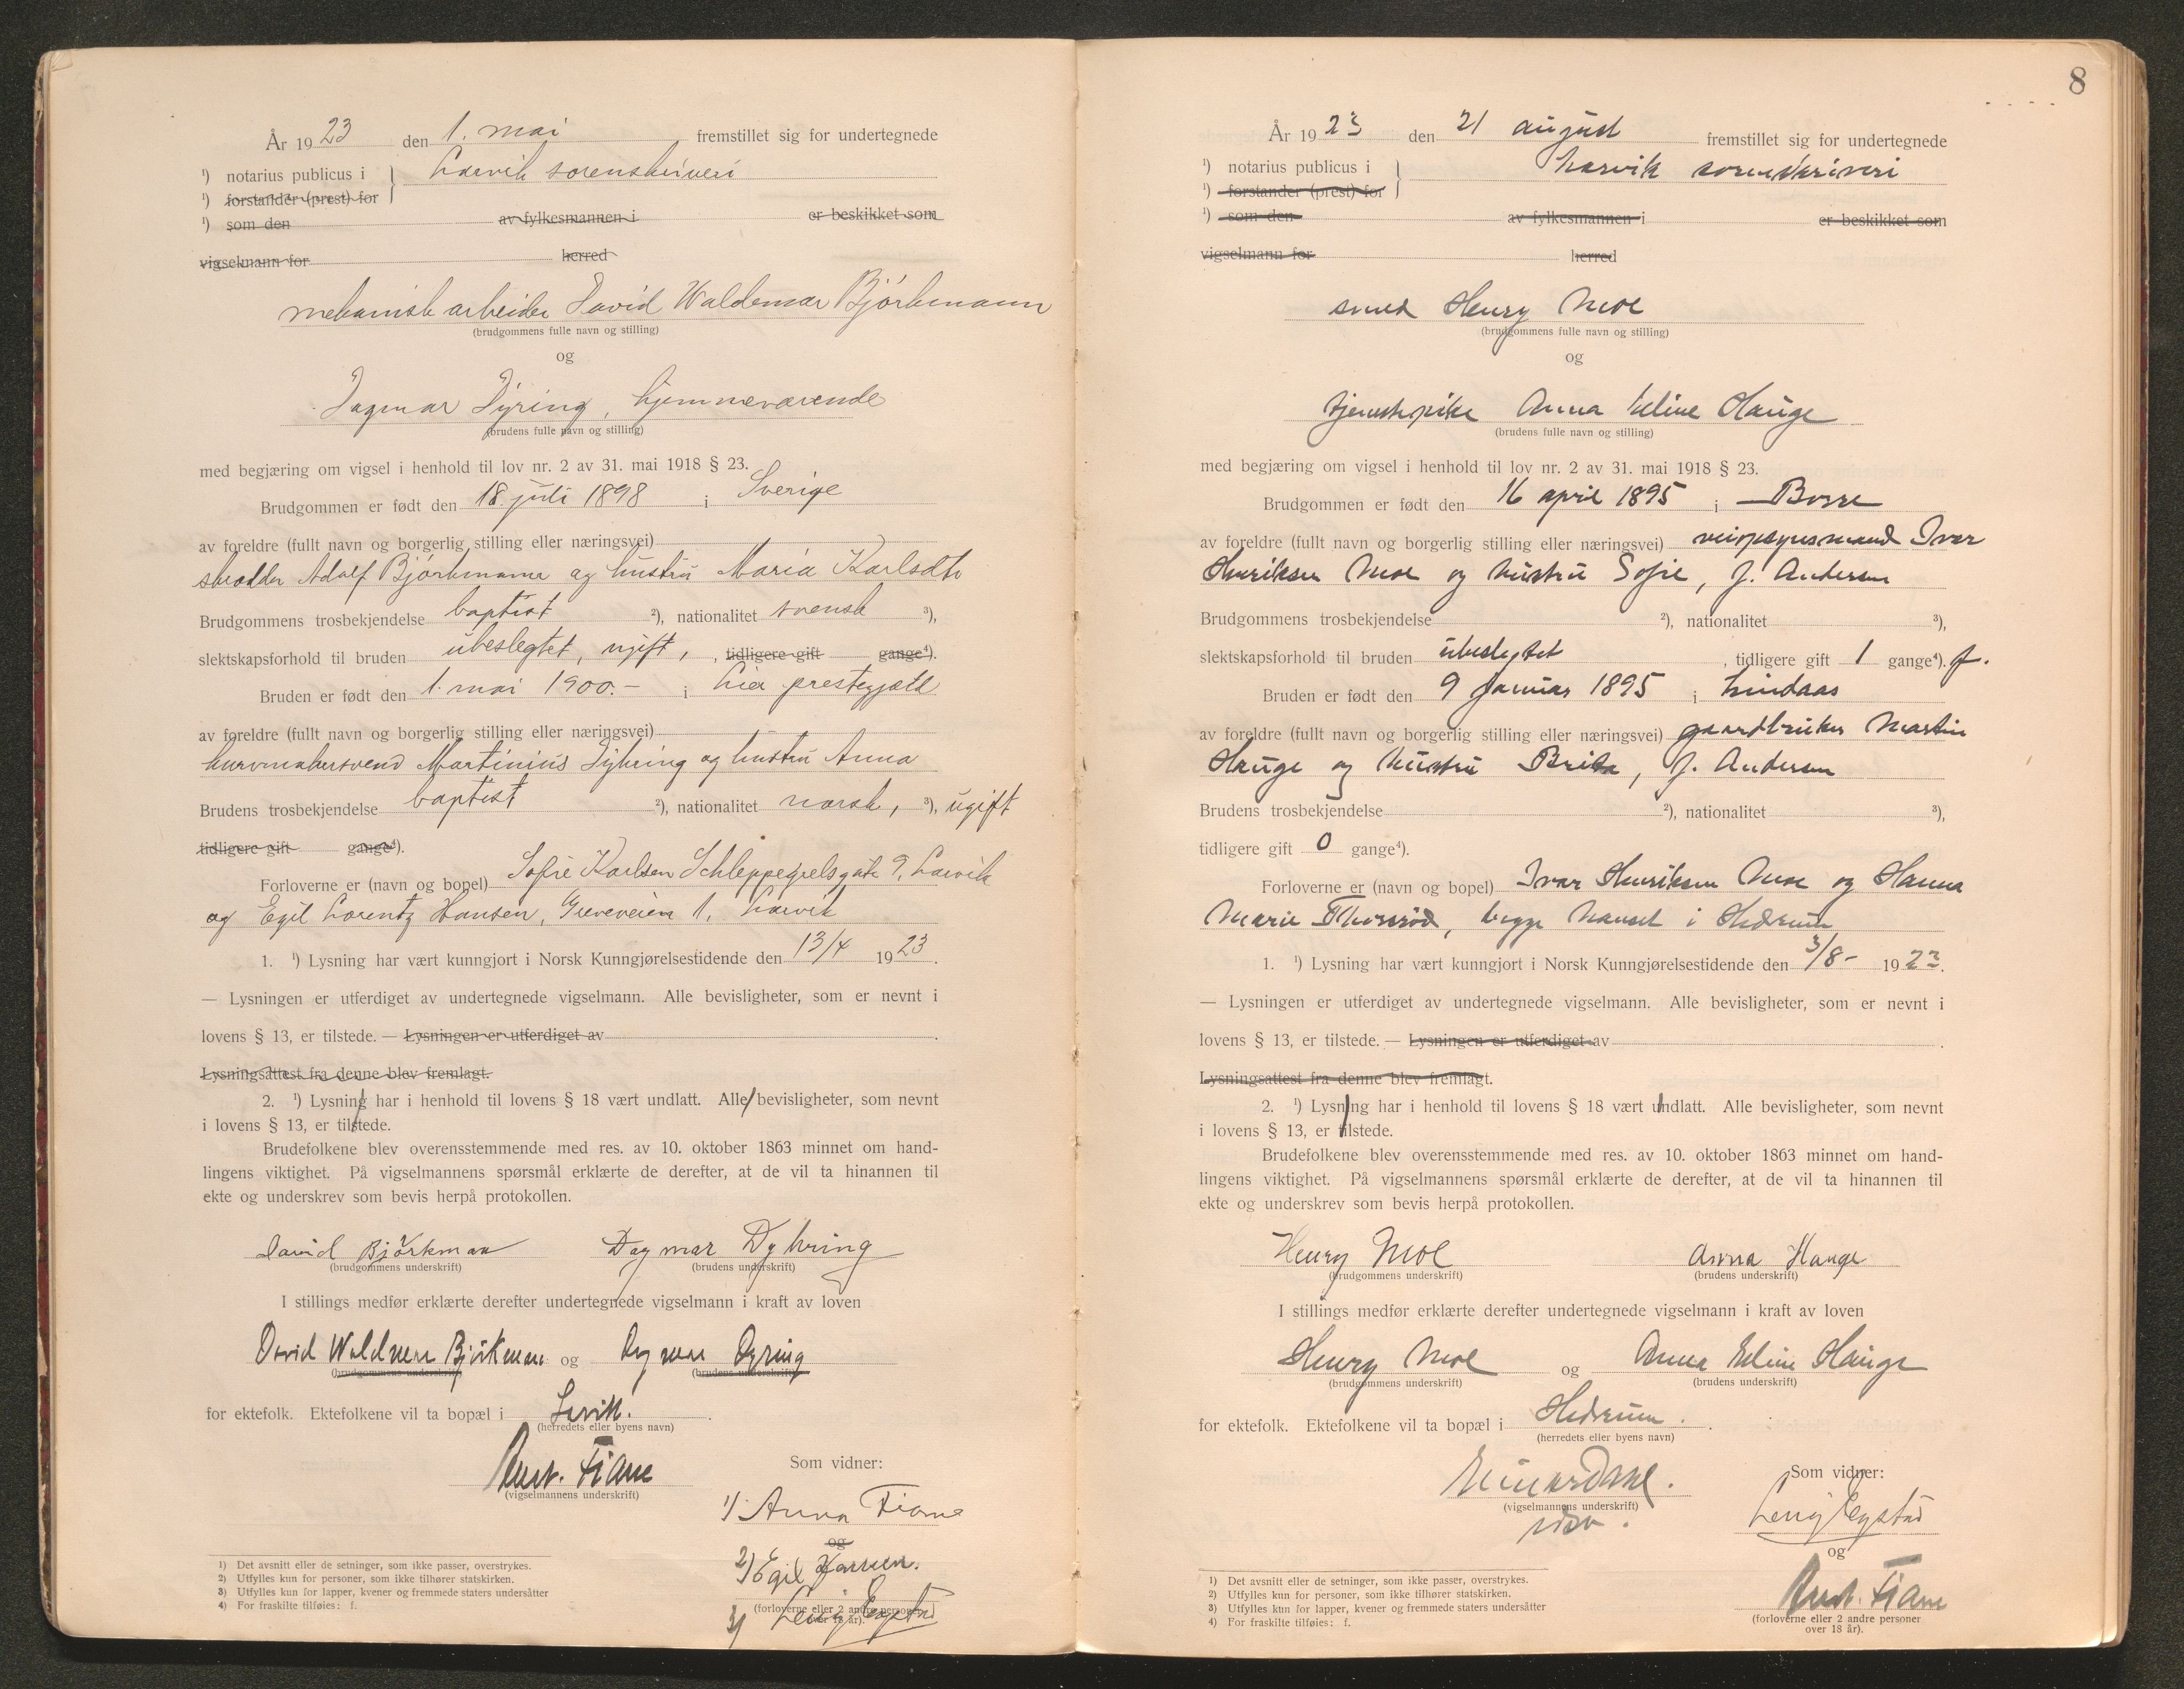 År 1923 den 1. mai fremstillet sig for undertegnede
¹) notarius publicus i } Larvik sorenskriveri
¹) forstander (prest) for
¹) som den av fylkesmannen i er beskikket som
vigselmann for herred
mekanisk arbeider David Waldemar Bjørkmann
(brudgommens fulle navn og stilling)
og
Dagmar Dyring, hjemmeværende
(brudens fulle navn og stilling)
med begjæring om vigsel i henhold til lov nr. 2 av 31. mai 1918 § 23.
Brudgommen er født den 18. juli 1898 i Sverige
av foreldre (fullt navn og borgerlig stilling eller næringsvei)
skrædder Adolf Bjørkmann og hustru Maria Karlsdtr
Brudgommens trosbekjendelse baptist ²), nationalitet svensk ³),
slektskapsforhold til bruden ubeslegtet, ugift, , tidligere gift gange⁴).
Bruden er født den 1. mai 1900.- i Lier prestegjæld
av foreldre (fullt navn og borgerlig stilling eller næringsvei)
kurvmakersvend Martinius Dyhring og hustru Anna
Brudens trosbekjendelse baptist ²), nationalitet norsk, ³), ugift
tidligere gift gange⁴).
Forloverne er (navn og bopel) Sofie Karlsen Schleppegrelsgate 9, Larvik
og Egil Lorentz Hansen, Greveveien 1, Larvik
1. ¹) Lysning har vært kunngjort i Norsk Kunngjørelsestidende den 13/4 1923.
— Lysningen er utferdiget av undertegnede vigselmann. Alle bevisligheter, som er nevnt i
lovens § 13, er tilstede. — Lysningen er utferdiget av .
Lysningsattest fra denne blev fremlagt.
2. ¹) Lysning har i henhold til lovens § 18 vært undlatt. Alle bevisligheter, som nevnt
i lovens § 13, er tilstede.
Brudefolkene blev overensstemmende med res. av 10. oktober 1863 minnet om hand-
lingens viktighet. På vigselmannens spørsmål erklærte de derefter, at de vil ta hinannen til
ekte og underskrev som bevis herpå protokollen.
David Björkman Dagmar Dyhring
(brudgommens underskrift) (brudens underskrift)
I stillings medfør erklærte derefter undertegnede vigselmann i kraft av loven
David Waldemar Bjørkmann og Dagmar Dyring
(brudgommens underskrift) (brudens underskrift)
for ektefolk. Ektefolkene vil ta bopæl i Larvik.
(herredets eller byens navn)
Aust. Fiane
(vigselmannens underskrift)
Som vidner:
1) Anna Fiane
og
2) Egil Hansen.
(forloverne eller 2 andre personer
over 18 år).
3)
¹) Det avsnitt eller de setninger, som ikke passer, overstrykes.
²) Utfylles kun for personer, som ikke tilhører statskirken.
³) Utfylles kun for lapper, kvener og fremmede staters undersåtter
⁴) For fraskilte tilføies: f.
8
År 1923 den 21 august fremstillet sig for undertegnede
¹) notarius publicus i } Larvik sorenskriveri
¹) forstander (prest) for
¹) som den av fylkesmannen i er beskikket som
vigselmann for herred
smed Henry Moe
(brudgommens fulle navn og stilling)
og
tjenestepike Anna Eline Hauge
(brudens fulle navn og stilling)
med begjæring om vigsel i henhold til lov nr. 2 av 31. mai 1918 § 23.
Brudgommen er født den 16 april 1895 i Borre
av foreldre (fullt navn og borgerlig stilling eller næringsvei) veiopsynsmand Ivar
Henriksen Moe og hustru Sofie, f. Andersen
Brudgommens trosbekjendelse ²), nationalitet ³),
slektskapsforhold til bruden ubeslegtet , tidligere gift 1 gange⁴). f.
Bruden er født den 9 januar 1895 i Lindaas
av foreldre (fullt navn og borgerlig stilling eller næringsvei) gaardbruker Martin
Hauge og hustru Brita, f. Andersen
Brudens trosbekjendelse ²), nationalitet ³),
tidligere gift 0 gange⁴).
Forloverne er (navn og bopel) Ivar Henriksen Moe og Hanna
Marie Thorsrød, begge Nanset i Hedrum
1. ¹) Lysning har vært kunngjort i Norsk Kunngjørelsestidende den 3/8- 1923.
— Lysningen er utferdiget av undertegnede vigselmann. Alle bevisligheter, som er nevnt i
lovens § 13, er tilstede. — Lysningen er utferdiget av .
Lysningsattest fra denne blev fremlagt.
2. ¹) Lysning har i henhold til lovens § 18 vært undlatt. Alle bevisligheter, som nevnt
i lovens § 13, er tilstede.
Brudefolkene blev overensstemmende med res. av 10. oktober 1863 minnet om hand-
lingens viktighet. På vigselmannens spørsmål erklærte de derefter, at de vil ta hinannen til
ekte og underskrev som bevis herpå protokollen.
Henry Moe Anna Hauge
(brudgommens underskrift) (brudens underskrift)
I stillings medfør erklærte derefter undertegnede vigselmann i kraft av loven
Henry Moe og Anna Eline Hauge
(brudgommens underskrift) (brudens underskrift)
for ektefolk. Ektefolkene vil ta bopæl i Hedrum.
(herredets eller byens navn)
Einar Dahl.
(vigselmannens underskrift)
Som vidner:
og
Aust. Fiane
(forloverne eller 2 andre personer
over 18 år).
¹) Det avsnitt eller de setninger, som ikke passer, overstrykes.
²) Utfylles kun for personer, som ikke tilhører statskirken.
³) Utfylles kun for lapper, kvener og fremmede staters undersåtter
⁴) For fraskilte tilføies: f.